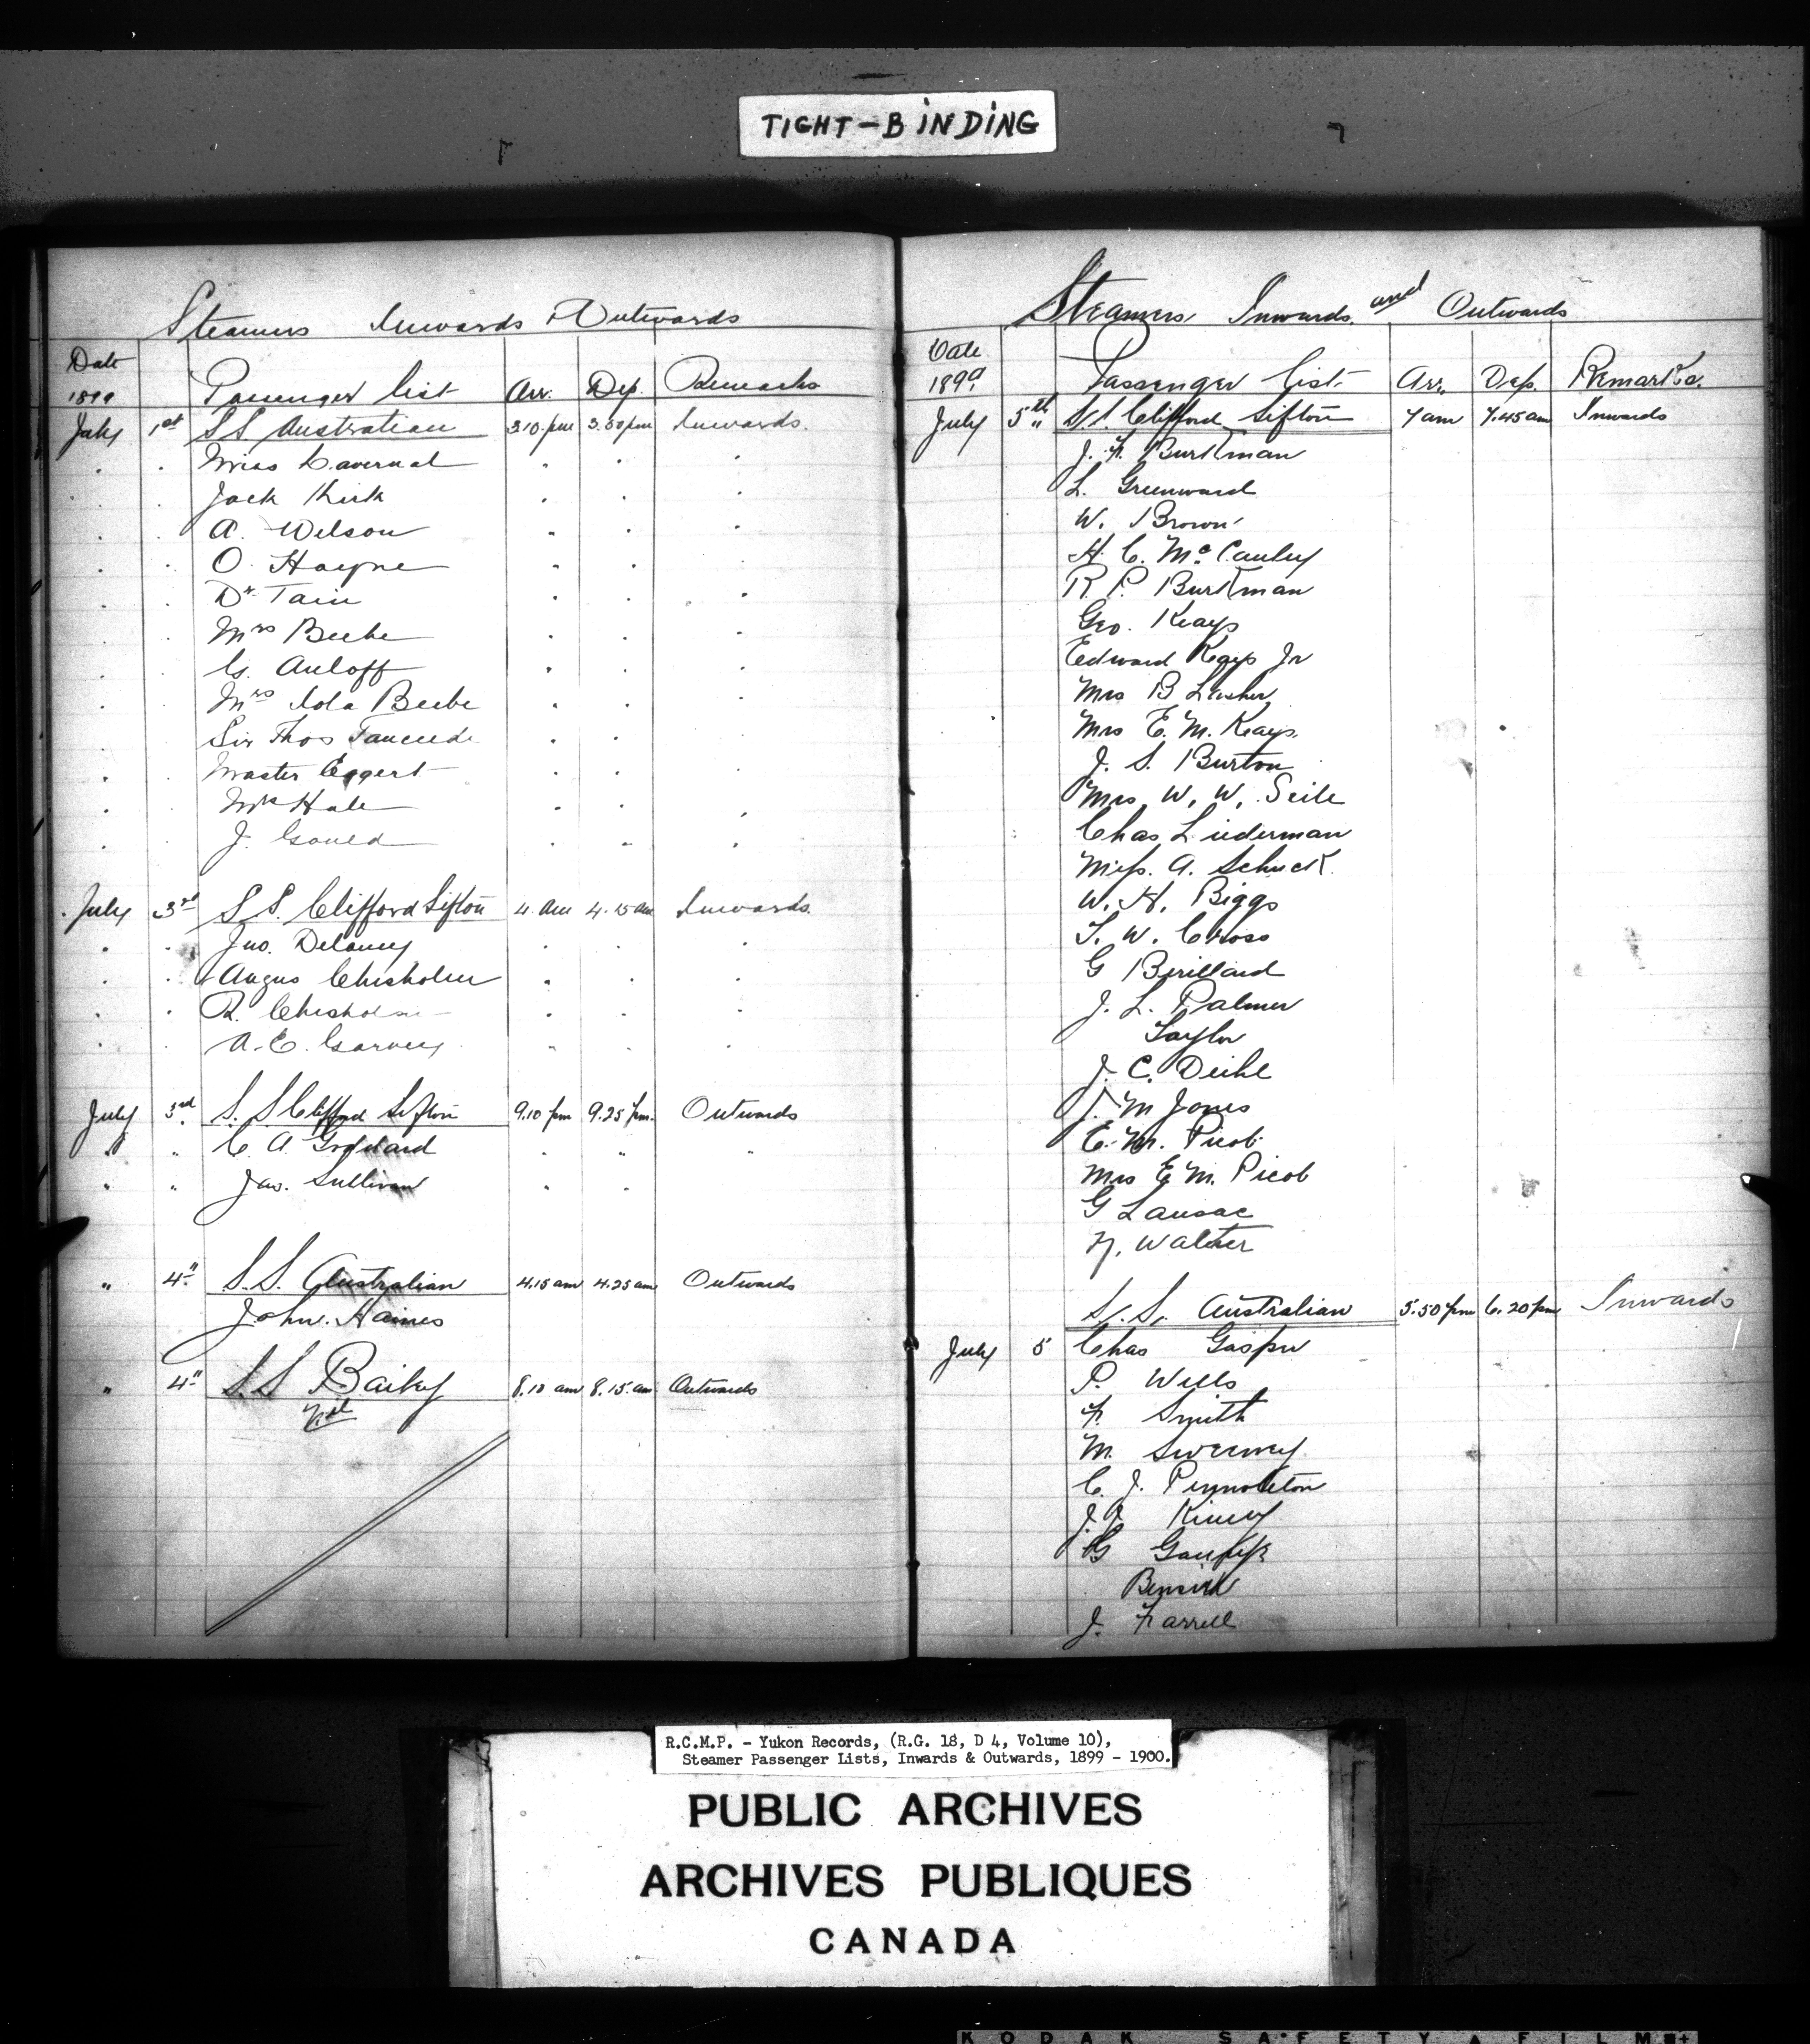 TIGHT-BINDING
Steamers Inwards & Outwards
Date
1899 Passenger List Arr. Dep. Remarks
July 1st S S Australian 3.10. pm 3.50 pm Inwards.
Miss Cavernal
Jack Kirk
A. Wilson
O. Hayne
Dr. Tain
Mrs Beebe
G. Auloff
Mrs Iola Beebe
Sir Thos Tancrede
Master Eggert
Mr Hale
J. Gould
July 3rd S S. Clifford Sifton 4. am 4.15 am Inwards.
Jno. Delaney
Angus Chisholm
R. Chisholm
A. E. Garvey
July 3rd S. S Clifford Sifton 9.10 pm 9.25 pm. Outwards
C A Goddard
Jas. Sullivan
" 4" S.S. Australian 4.15 am 4.25 am Outwards
John. Haines
" 4" S.S Bailey 8.10 am 8.15. am Outwards
Nil
Steamers, Inwards. and Outwards
Date
1899 Passenger List. Arr. Dep. Remarks.
July 5th S.S. Clifford Sifton 7 am 7.45 am Inwards
J. F. Burkman
L. Greenward
W. Brown
H. C. McCauley
R. P. Burkman
Geo. Keays
Edward Keays Jr
Mrs B Lasher
Mrs E. M. Keays.
J. S. Burton
Mrs W. W. Seile
Chas Liederman
Miss. A. Schuck.
W. H. Biggs
T. W. Cross
G Berillard
J. L. Palmer
Taylor
J. C. Deihl
J. M Jones
E. M. Picob.
Mrs E. M. Picob
G Lansac
N. Walther
S. S. Australian 5.50 pm 6.20 pm Inwards
July 5 Chas Gasper
P. Wells
F. Smith
M. Sweeney
C. J.
J. J Kinney
G
J. Farrell
R.C.M.P. - Yukon Records, (R.G. 18, D 4, Volume 10),
Steamer Passenger Lists, Inwards & Outwards, 1899 - 1900.
PUBLIC ARCHIVES
ARCHIVES PUBLIQUES
CANADA
KODAK SAFETY A FILM